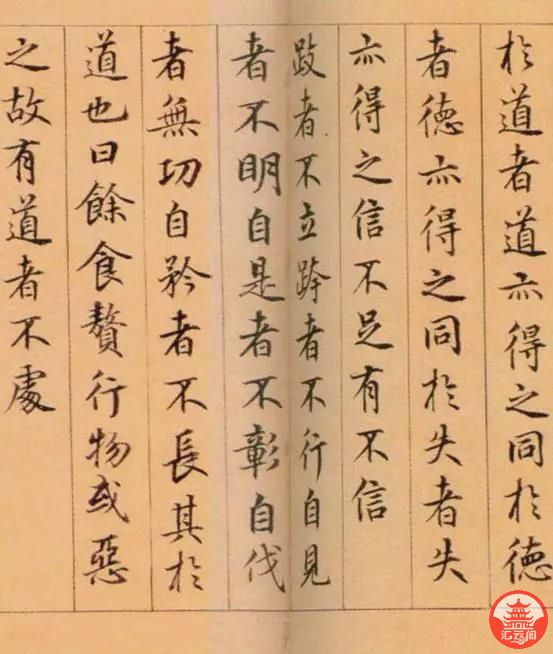 於道者道亦得之同於徳
者徳亦得之同於失者失
亦得之信不足有不信
跂者不立跨者不行自見
者不明自是者不彰自伐
者無功自矜者不長其於
道也曰餘食贅行物或惡
之故有道者不處
汇云阁